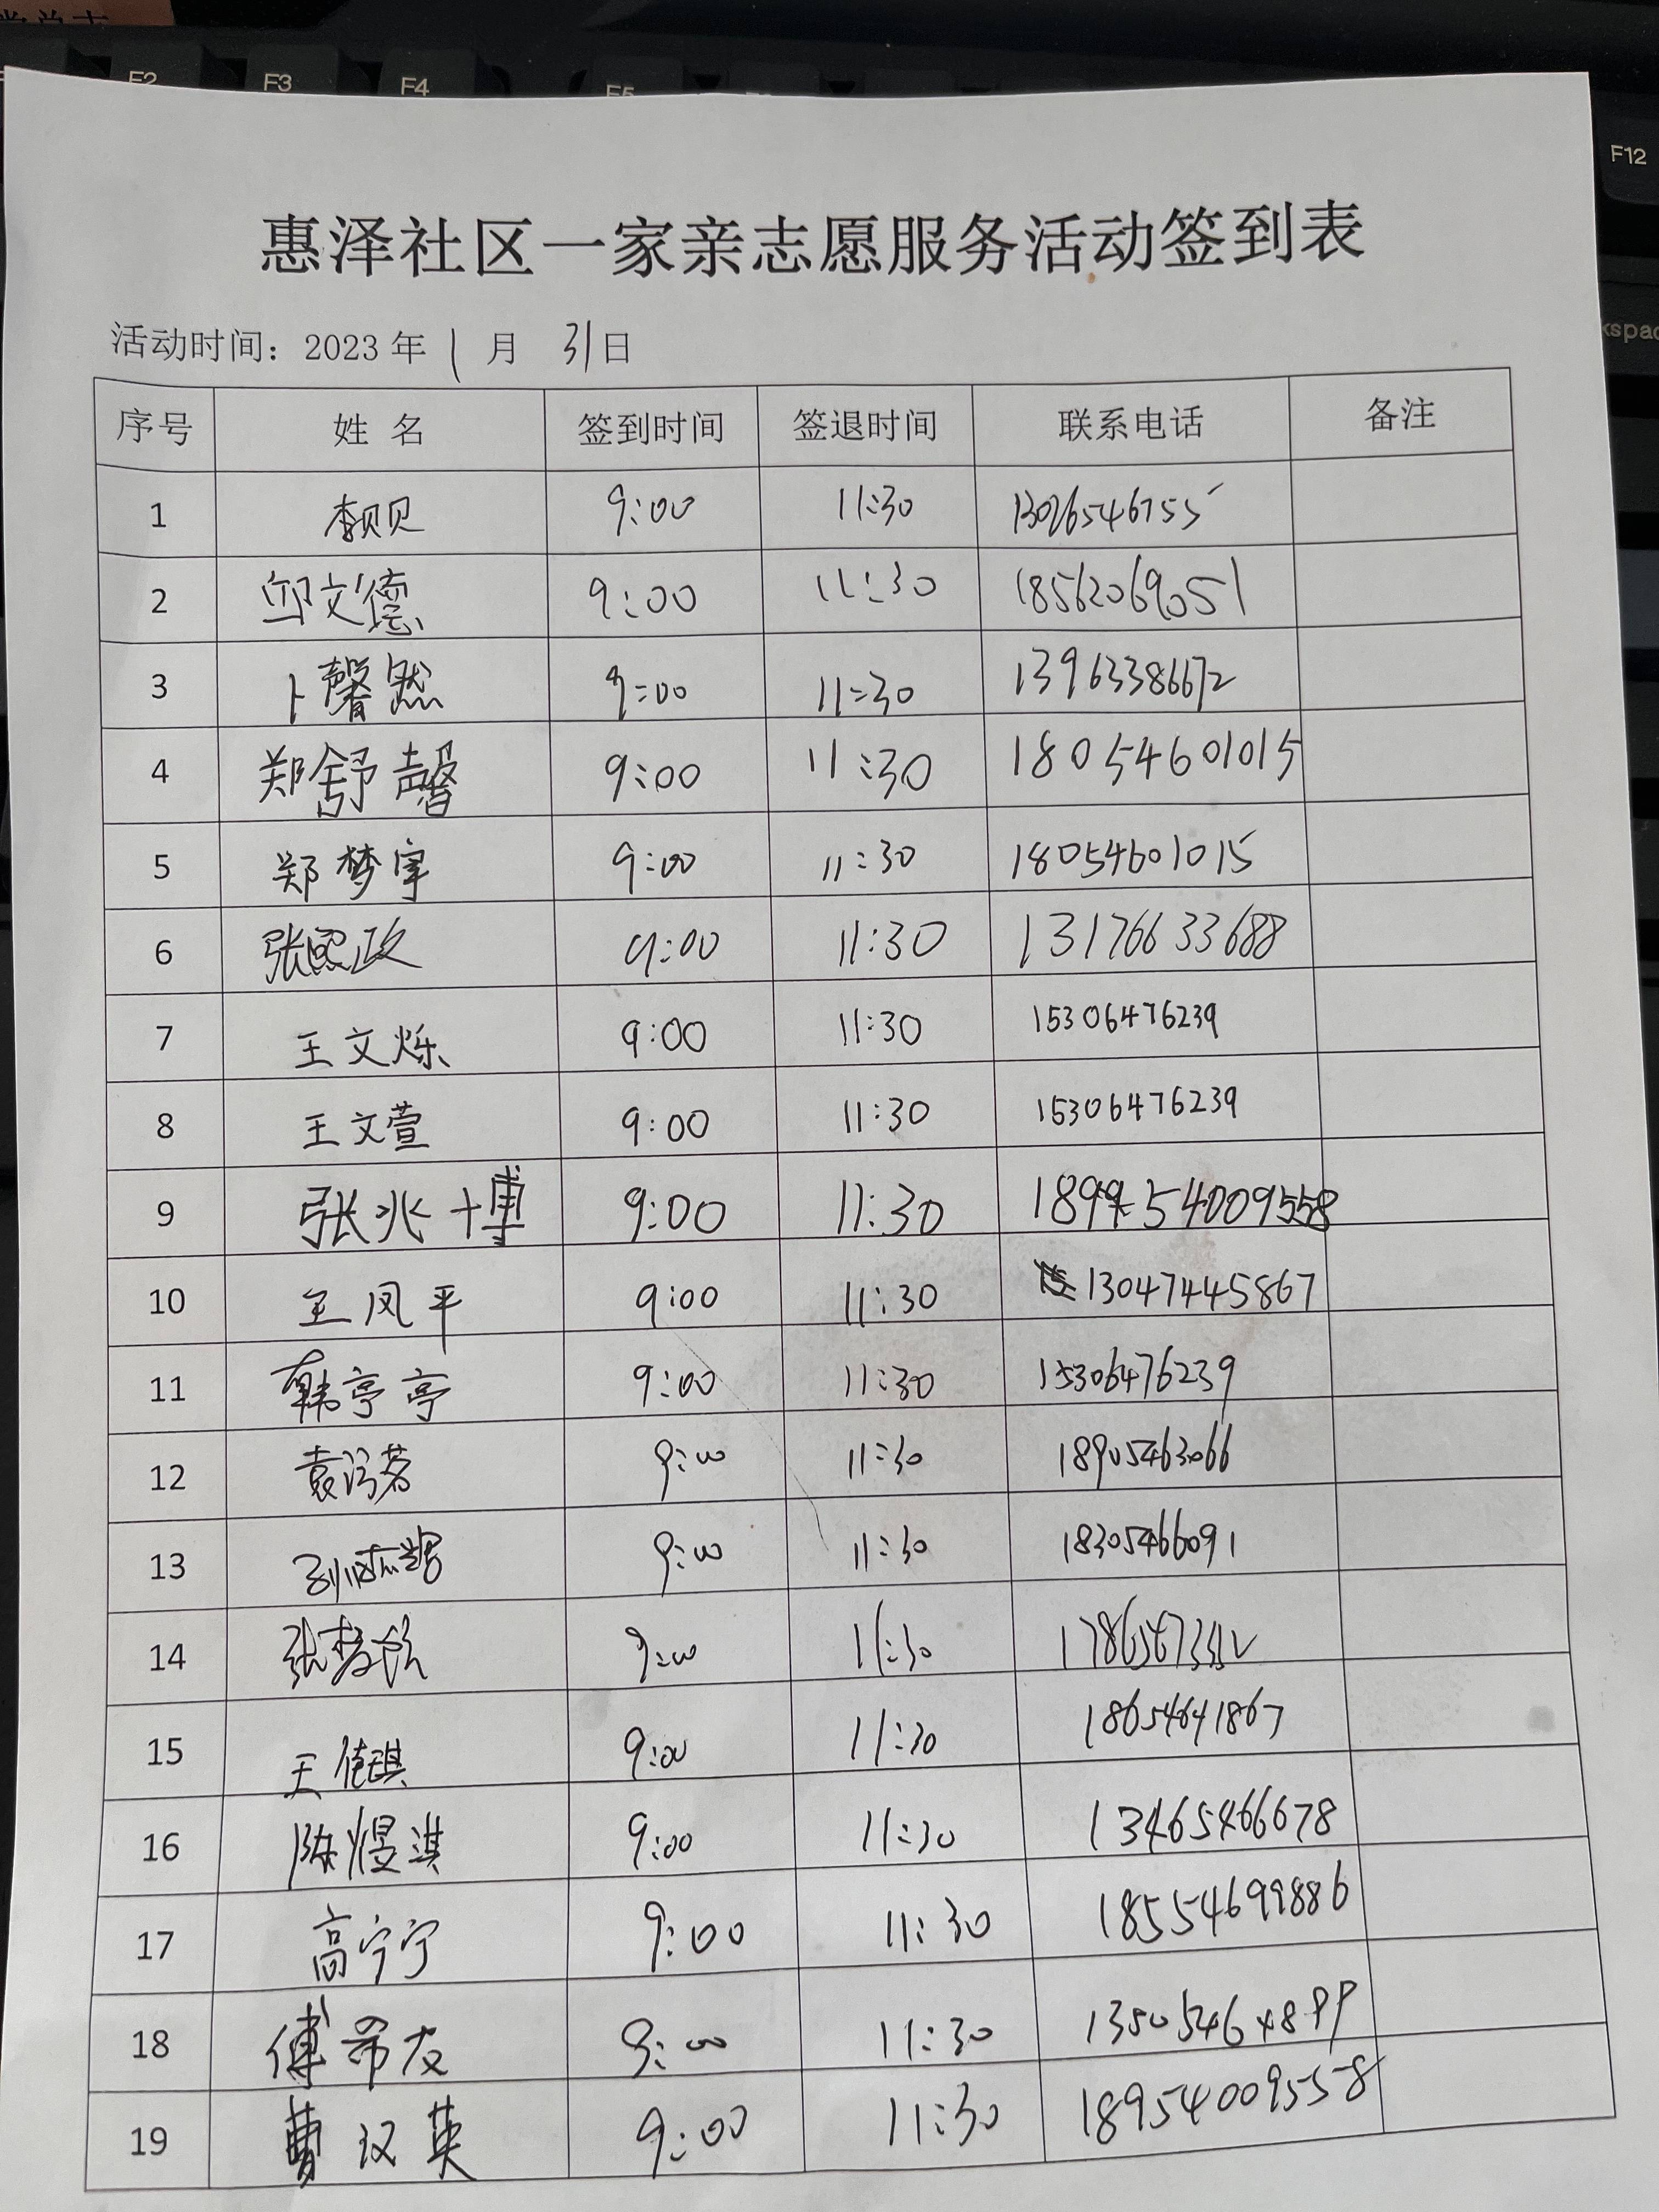 惠泽社区一家亲志愿服务活动签到表
活动时间：2023 年 1 月 31 日
序号 姓 名 签到时间 签退时间 联系电话 备注
1 李贝贝 9:00 11:30 13026546755
2 邱文德 9:00 11:30 18562069051
3 卜馨然 9:00 11:30 13963386672
4 郑舒馨 9:00 11:30 18054601015
5 郑梦宰 9:00 11:30 18054601015
6 张熙政 9:00 11:30 13176633688
7 王文烁 9:00 11:30 15306476239
8 王文萱 9:00 11:30 15306476239
9 张兆博 9:00 11:30 18954009558
10 王凤平 9:00 11:30 13047445867
11 韩亭亭 9:00 11:30 15306476239
12 9:00 11:30 18905463066
13 9:00 11:30 18305466091
14 9:00 11:30
15 王德琪 9:00 11:30 18654641867
16 陈煜淇 9:00 11:30 13465466678
17 高宁宁 9:00 11:30 18554699886
18 傅希友 9:00 11:30 13505464899
19 曹汉英 9:00 11:30 18954009558
F2 F3 F4 F5
F12